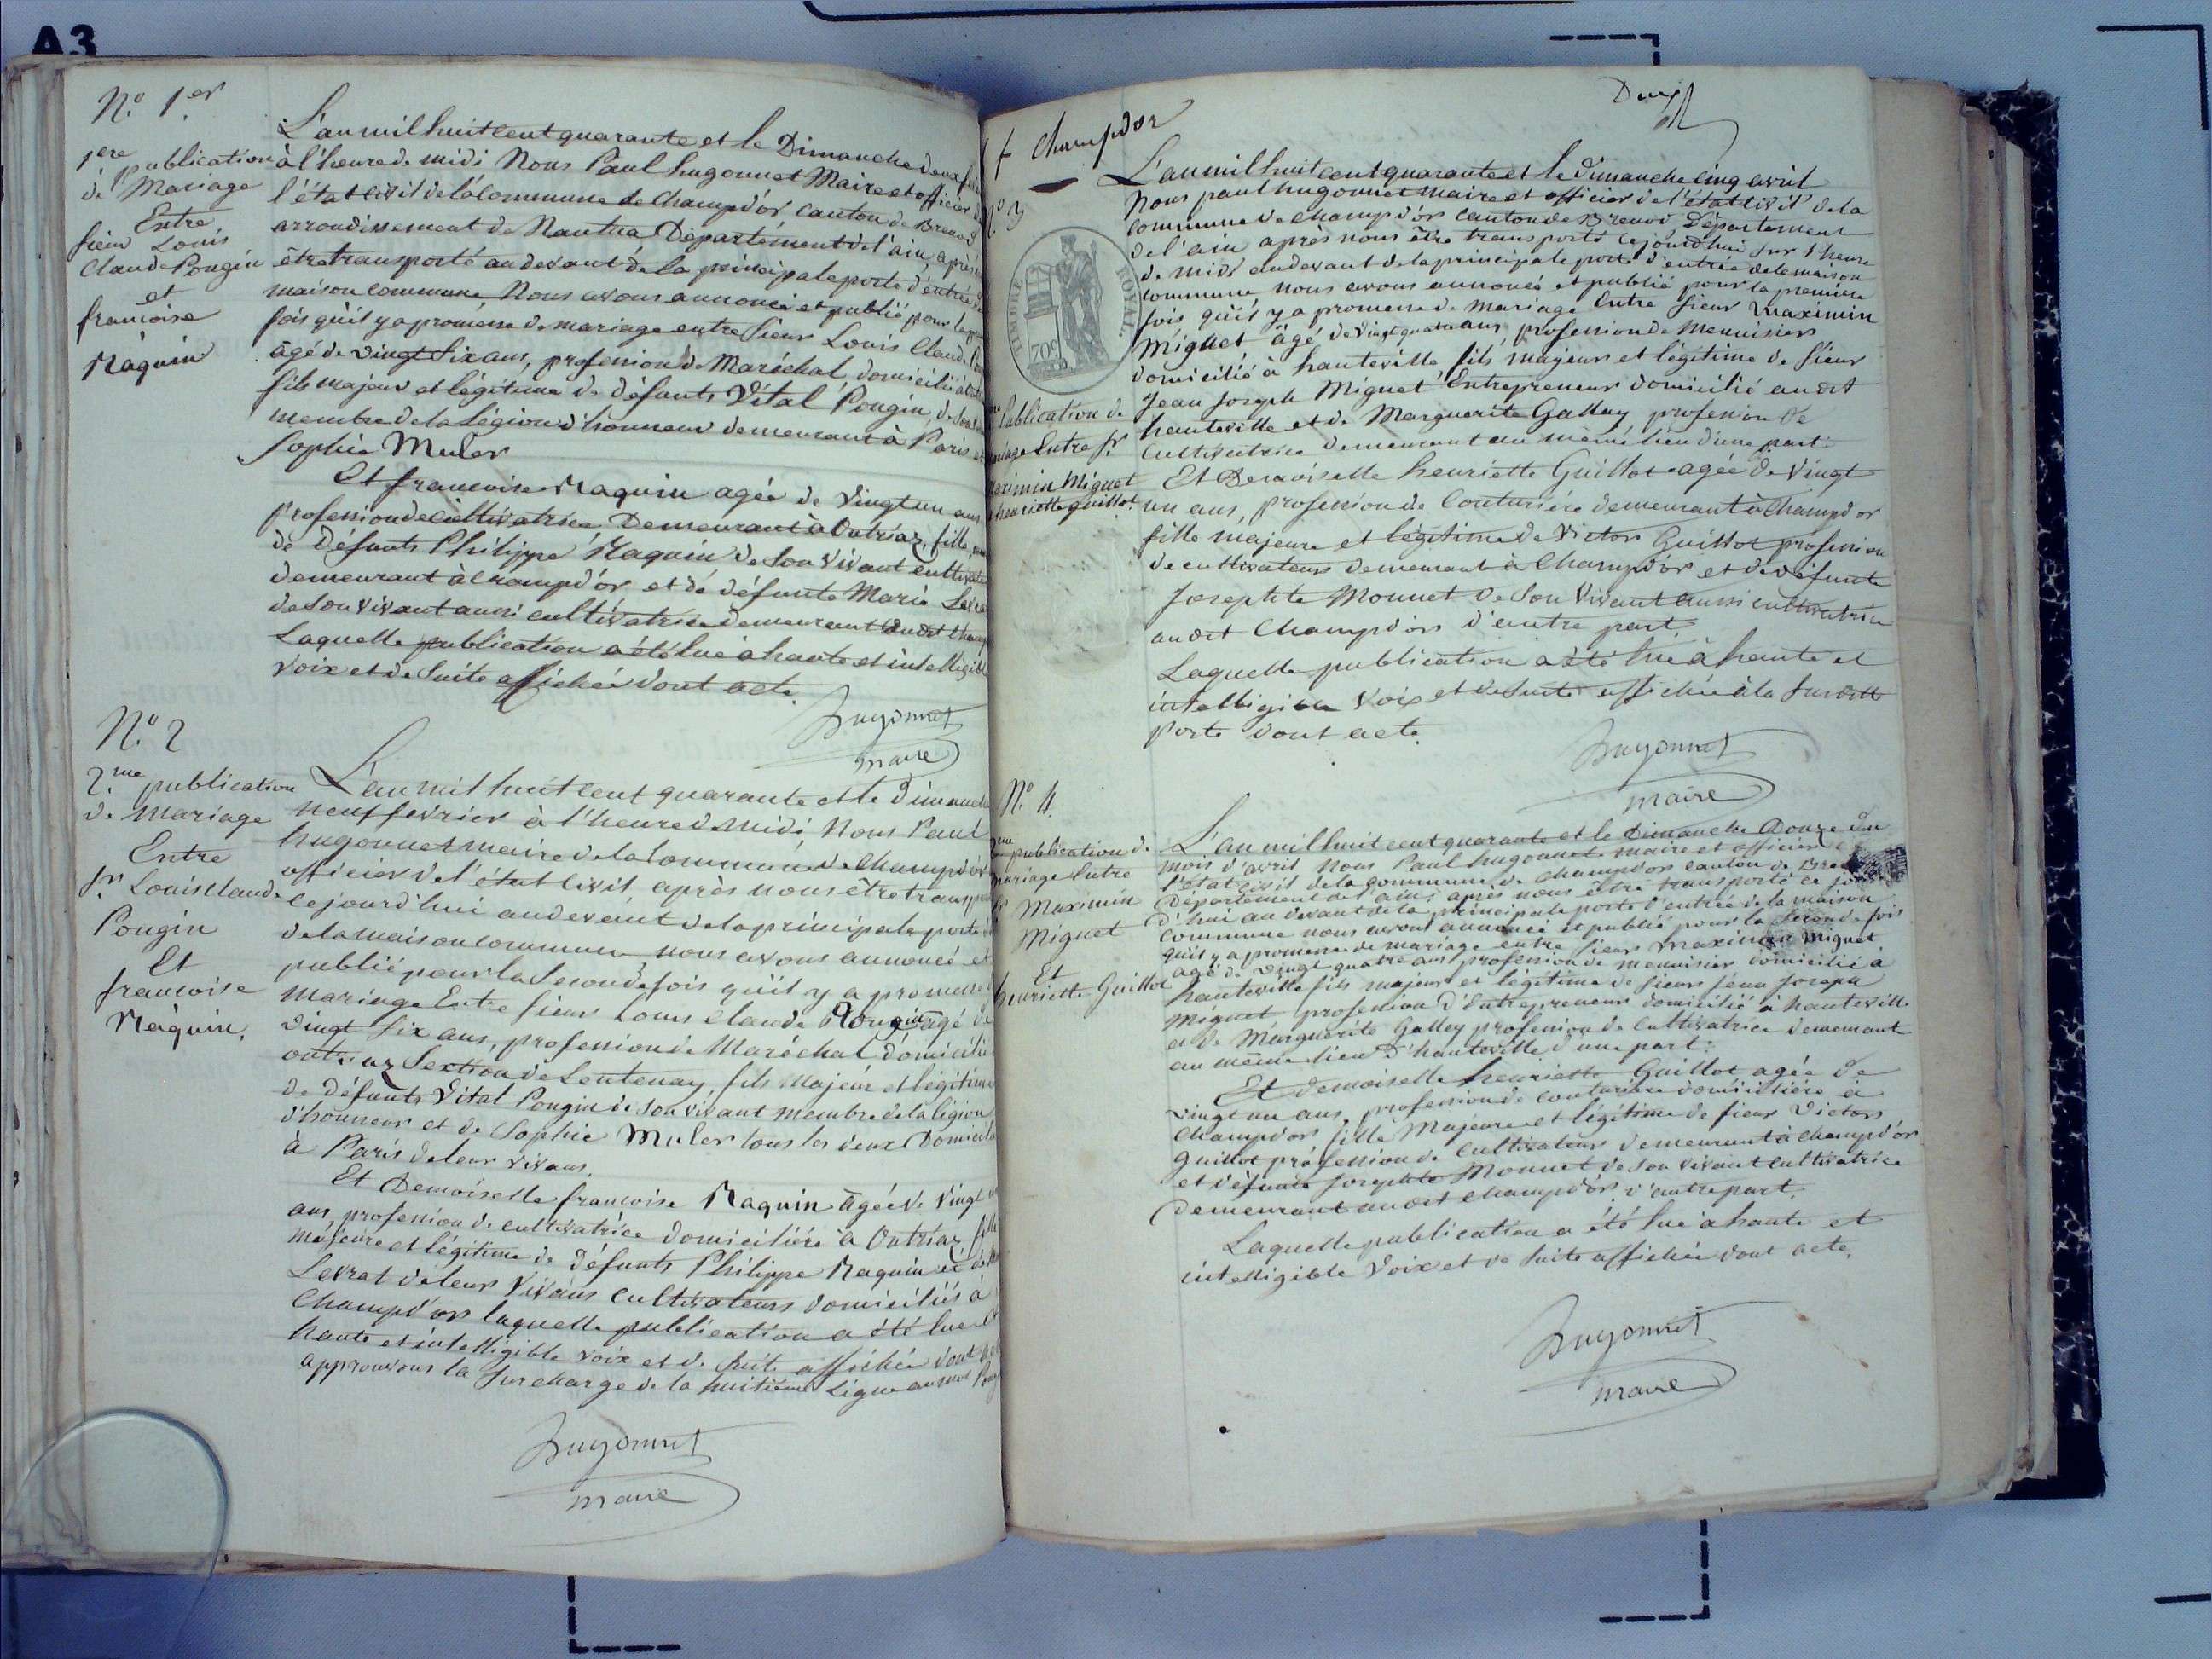 A3
N.º 1.er
1ere publication
de Mariage
Entre
sieur Louis
Claude Pougin
et
francoise
Raquin
L'an mil huit cent quarante et le Dimanche deux
à l'heure de midi Nous Paul hugonnet Maire et officier
l'état civil de la Commune de Champd'or canton de Brenod
arrondissement de Nantua Département de l'ain, après
être transporté au devant de la principale porte d'entrée
maison commune, Nous avons annoncé et publié pour la
fois qu'il y a promesse de mariage entre sieur Louis Claude
âgé de vingt six ans, profession de Maréchal domicilié à
fils majeur et légitime de défunts Vital Pougin, de son
membre de la Légion d'honneur demeurant à Paris et
Sophie Muler
Et francoise Raquin agée de vingt un ans
profession de cultivatrice Demeurant à Outriaz, fille
de Défunts Philippe Raquin de son vivant
demeurant à champd'or et de défunte Marie
de son vivant aussi cultivatrice demeurant audit
Laquelle publication a été lue à haute et intelligible
voix et de suite affichée dont acte.
hugonnet
maire
N.º 2
2.me publication
de Mariage
Entre
sr. Louis Claude
Pougin
Et
francoise
Raquin.
L'an mil huit cent quarante et le dimanche
neuf fevrier à l'heure de midi, Nous Paul
hugonnet maire de la Commune de Champd'or
officier de l'état civil, après nous être
cejourd'hui au devant de la principale porte
de la maison commune, nous avons annoncé et
publié pour la Seconde fois qu'il y a promesse
Mariage Entre sieur Louis Claude Pougin agé de
vingt six ans, profession de Maréchal domicilié
outriaz Section de Lentenay, fils Majeur et légitime
de Défunts Vital Pougin de son vivant membre de la légion
d'honneur et de Sophie Muler tous les deux
à Paris de leur vivans.
Et Demoiselle francoise Raquin agée de vingt
ans, profession de cultivatrice domiciliére à Outriaz
majeure et légitime de Défunts Philippe Raquin
Levrat de leur vivans cultivateurs domiciliés à
Champd'or laquelle publication a été lue
haute et intelligible voix et de suite affichée dont
approuvons la surcharge de la huitième Ligne au mot
hugonnet
maire
champdor
Deux
N.º 3
TIMBRE ROYAL.
70c
Publication de
mariage Entre sr.
Maximin Miguet
henriette guillot.
L'an mil huit cent quarante et le dimanche cinq avril
Nous paul hugonnet maire et officier de l'état civil de la
commune de champd'or canton de Brenod, Département
de l'ain après nous être transporté cejourd'hui sur l'heure
de midi au devant de la principale porte d'entrée de la maison
commune nous avons annoncé et publié pour la première
fois qu'il y a promesse de mariage Entre sieur Maximin
Miguet âgé de vingt quatre ans, profession de Menuisier
domicilié à hauteville, fils majeur et légitime de sieur
Jean Joseph Miguet Entrepreneur domicilié audit
hauteville et de Marguerite Gallay profession de
Cultivatrice demeurant au même lieu d'une part.
Et Demoiselle henriette Guillot agée de vingt
un ans, profession de Couturière demeurant à Champd'or
fille majeure et légitime de Victor Guillot profession
de cultivateur demeurant à Champd'or et de défunte
Josephte Monnet de Son vivant aussi cultivatrice
audit Champd'or d'autre part.
Laquelle publication a été lue à haute et
intelligible Voix et de suite affichée à la Susditte
porte dont acte.
hugonnet
maire
N.º 4.
publication de
mariage Entre
Maximin
Miguet
Et
henriette Guillot
L'an mil huit cent quarante et le Dimanche Douze du
mois d'avril Nous Paul hugonnet maire et officier
l'état civil de la commune de Champd'or canton de
Département de l'ain, après nous être transporté ce
d'hui au devant de la principale porte d'entrée de la maison
Commune nous avons annoncé et publié pour la seconde fois
qu'il y a promesse de mariage entre sieur Maximin Miguet
agé de vingt quatre ans profession de menuisier domicilié à
hauteville fils majeur et légitime de sieur Jean Joseph
Miguet profession d'Entrepreneur domicilié à hauteville
et de Marguerite Galley profession de Cultivatrice demeurant
au même lieu d'hauteville d'une part.
Et demoiselle henriette Guillot agée de
vingt un ans, profession de couturière domiciliére à
Champd'or fille Majeure et légitime de sieur Victor
Guillot profession de Cultivateur demeurant à champd'or
et défunte Josephte Monnet de Son vivant Cultivatrice
Demeurant audit champd'or, d'autre part.
Laquelle publication a été lue à haute et
intelligible Voix et de suite affichée dont acte.
hugonnet
maire